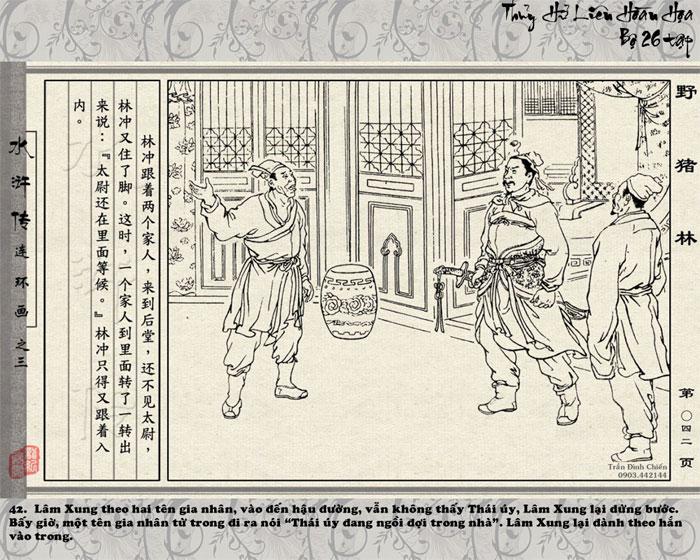 Thủy Hử Liên Hoàn Họa
Bộ 26 tập
野猪林
第〇四二页
水浒传连环画之三
林冲跟着两个家人，来到后堂，还不见太尉，
林冲又住了脚。这时，一个家人到里面转了一转出
来说：『太尉还在里面等候。』林冲只得又跟着入
内。
Trần Đình Chiến
0903.442144
42. Lâm Xung theo hai tên gia nhân, vào đến hậu đường, vẫn không thấy Thái úy, Lâm Xung lại dừng bước.
Bấy giờ, một tên gia nhân từ trong đi ra nói “Thái úy đang ngồi đợi trong nhà”. Lâm Xung lại đành theo hắn
vào trong.